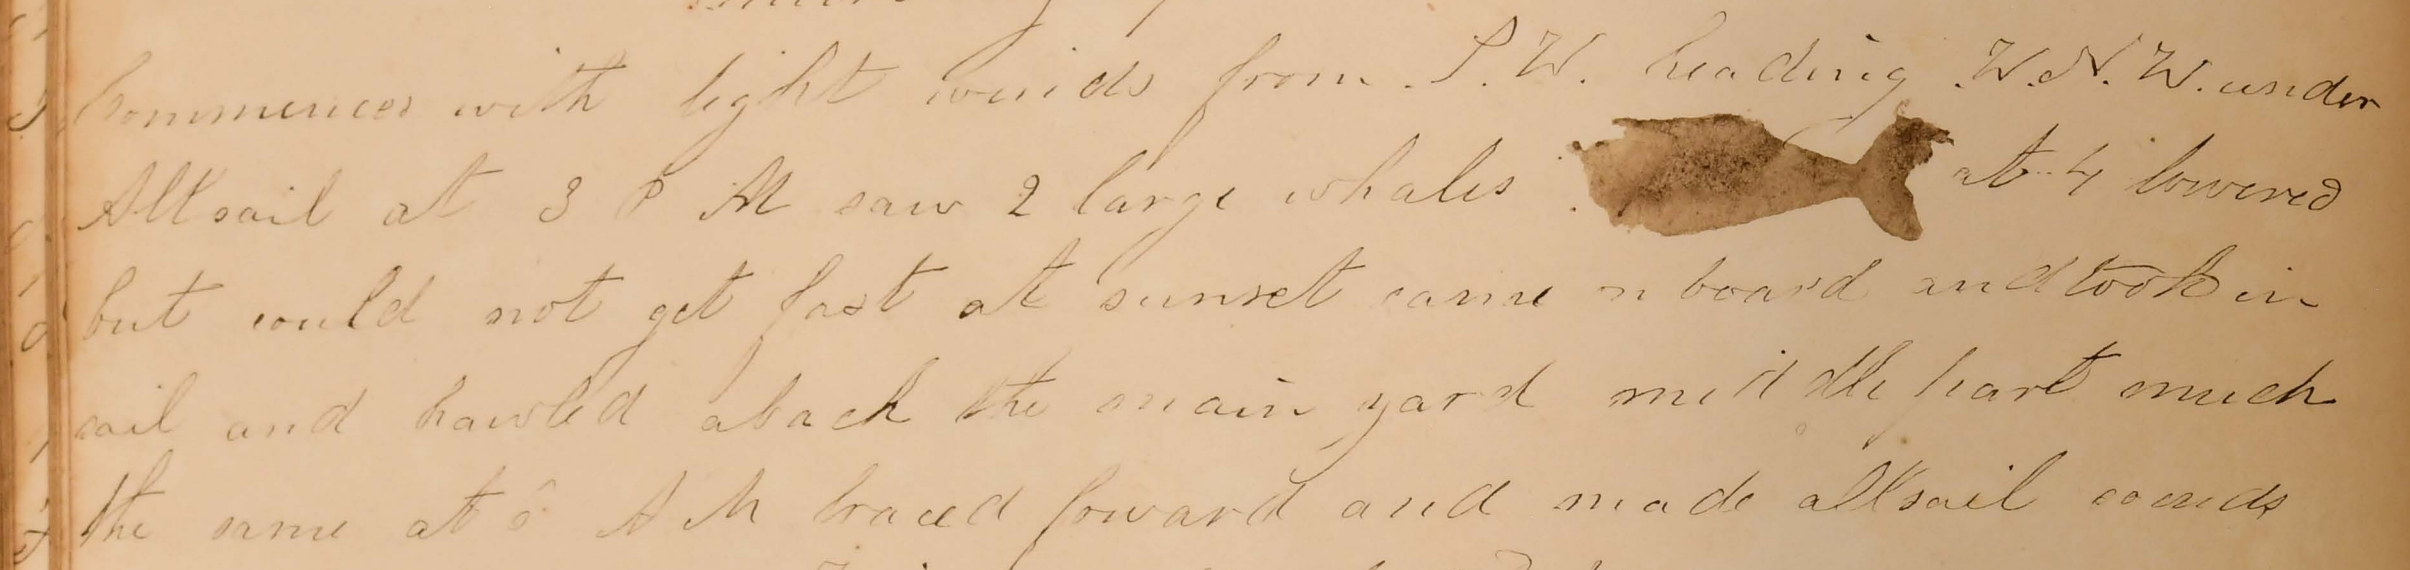 Commences with light winds from S.W. heading W.N.W. under
All sail at 3 P M saw 2 large whales at 4 lowered
but could not get fast at sunset came n board and took in
sail and hawled aback the main yard middle part much
the same at 6 A M braced foward and made all sail